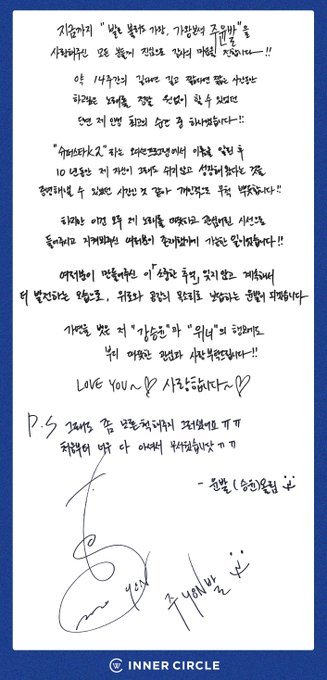 지금까지 "발로 불러도 가왕, 가왕본색 주윤발"을
사랑해주신 모든 분들께 진심으로 감사의 마음을 전합니다~!!
약 14주간의 길다면 길고 짧다면 짧은 시간동안
하고싶은 노래를 정말 원없이 할 수 있었던
단연 제 인생 최고의 순간 중 하나였습니다~!!
"슈퍼스타K2"라는 오디션프로그램에서 이름을 알린 후
10년동안 제 자신이 그래도 쉬지않고 성장해왔다는 것을
증명해낼 수 있었던 시간인 것 같아 개인적으로 무척 뿌듯합니다~!!
하지만 이건 모두 제 노래를 따뜻하고 관심어린 시선으로
들어주시고 지켜봐주신 여러분이 존재했기에 가능한 일이었습니다~!!
여러분이 만들어주신 이 소중한 추억, 잊지 않고 계속해서
더 발전하는 모습으로, 위로와 공감의 목소리로 보답하는 윤발이 되겠습니다
가면을 벗은 저 "강승윤"과 "위너"의 행보에도
부디 따뜻한 관심과 사랑 부탁드립니다~!!
LOVE YOU~♡ 사랑합니다~♡
P.S 그래도 좀 모른척 해주지 그러셨어요 ㅠㅠ
처음부터 너무 다 아셔서 무서웠습니닷 ㄲㄲ
- 윤발 (승윤) 올림
YOON
주YOON발
INNER CIRCLE